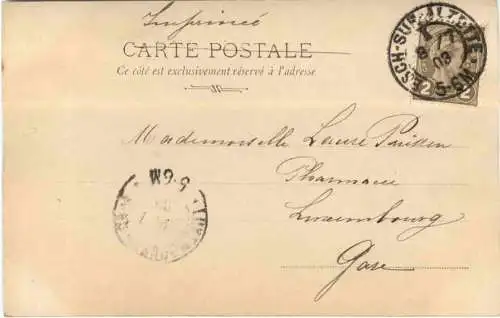 Imprimé
CARTE POSTALE
Ce côté est exclusivement réservé à l'adresse
ESCH-SUR-ALZETTE
03
5-6M
2 2
Mademoiselle Laure
Pharmacie
Luxembourg
Gare
6-6M